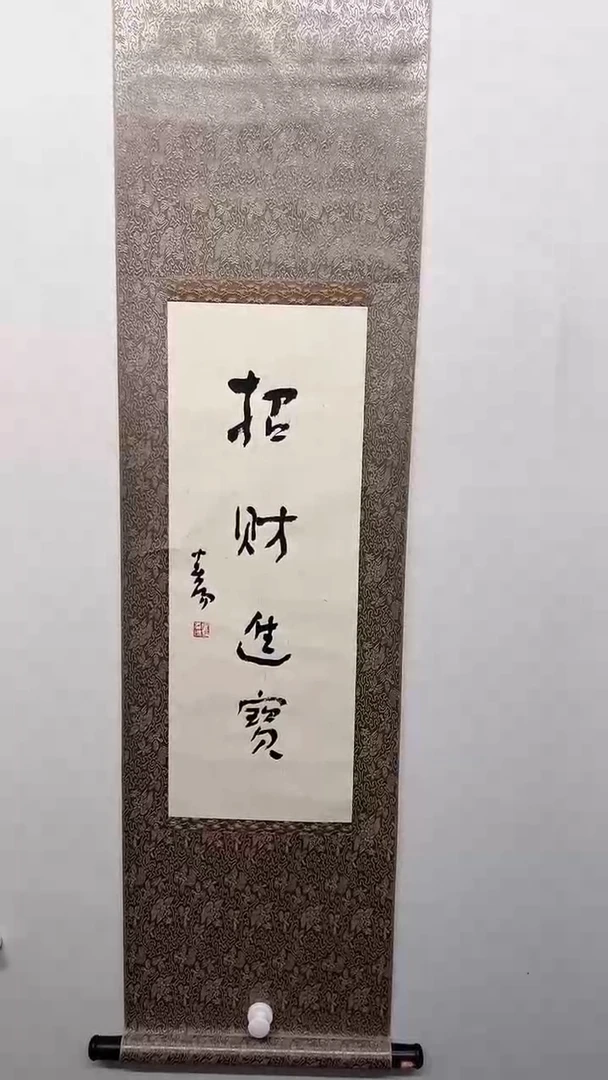 招财進寶